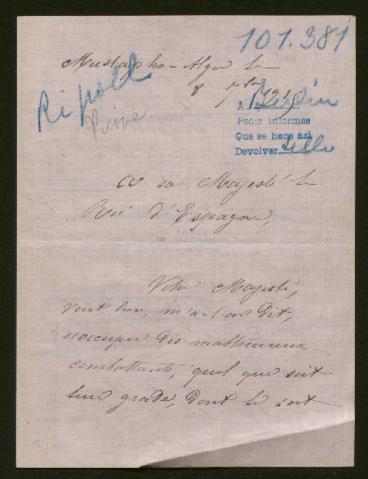 101.381
Mustapha-Alger le
8 7bre 1917
Ripoll
Pierre
A Berlin
Pedir informes
Que se hace así
Devolver sello
A sa Majesté le
Roi d'Espagne,
Votre Majesté,
veut bien, m'a-t-on dit,
s'occuper des malheureux
combattants, quel que soit
leur grade, dont le sort